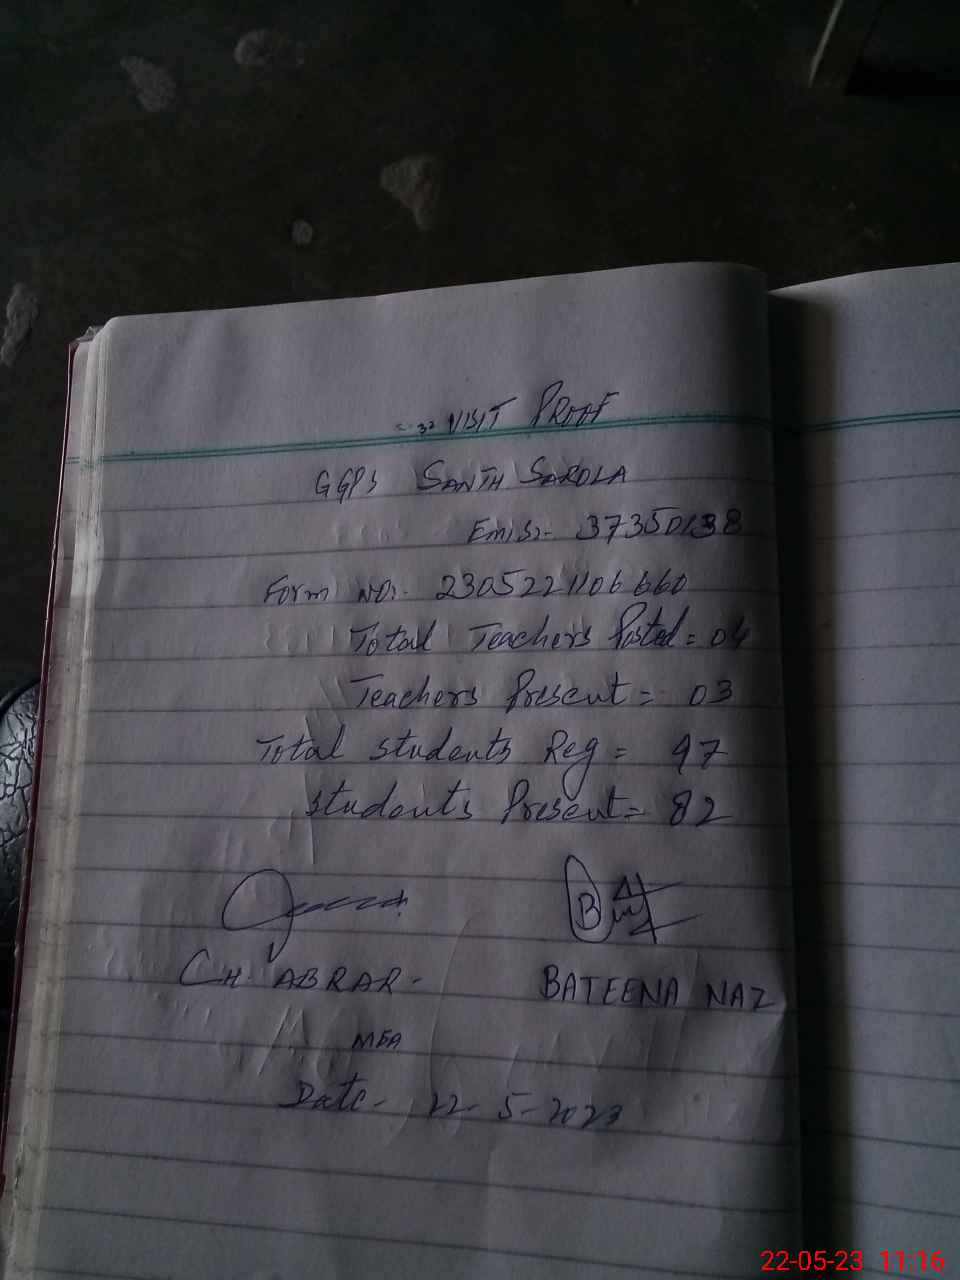 VISIT PROOF
GGPS SANTH SAROLA
Emis:- 37350138
Form No:- 2305221106660
Total Teachers Posted = 04
Teachers Present = 03
Total students Reg = 97
students Present = 82
CH. ABRAR - BATEENA NAZ
MEA
Date - 22-5-2023
22-05-23 11:16